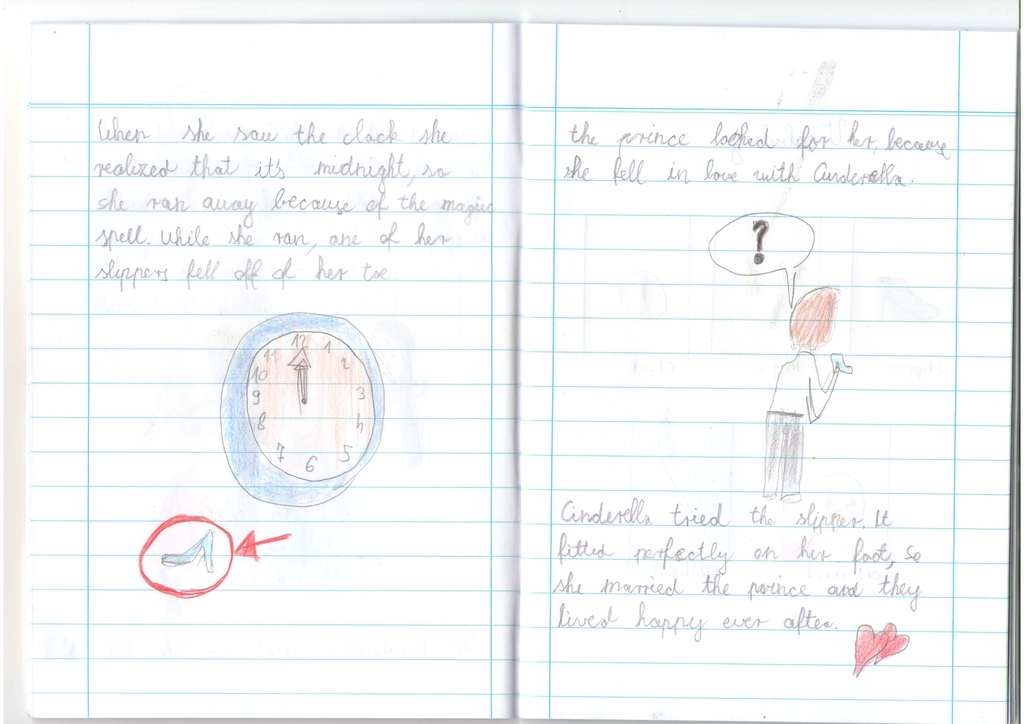 When she saw the clock she
realized that it's midnight, so
she ran away because of the magic
spell. While she ran, one of her
slippers fell off of her toe.
12
11
1
2
10
9
3
8
4
7
5
6
the prince looked for her, because
she fell in love with Cinderella.
?
Cinderella tried the slipper. It
fitted perfectly on her foot, so
she married the prince and they
lived happy ever after.